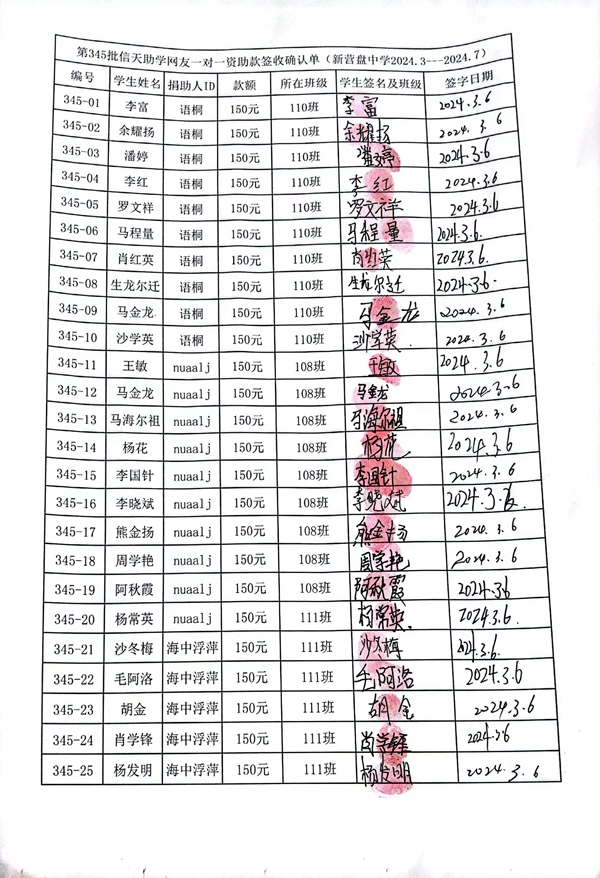 第345批信天助学网友一对一资助款签收确认单（新营盘中学2024.3---2024.7）
编号 学生姓名 捐助人ID 款额 所在班级 学生签名及班级 签字日期
345-01 李富 语桐 150元 110班 李富 2024.3.6
345-02 余耀扬 语桐 150元 110班 余耀扬 2024.3.6
345-03 潘婷 语桐 150元 110班 潘婷 2024.3.6
345-04 李红 语桐 150元 110班 李红 2024.3.6
345-05 罗文祥 语桐 150元 110班 罗文祥 2024.3.6
345-06 马程量 语桐 150元 110班 马程量 2024.3.6
345-07 肖红英 语桐 150元 110班 肖红英 2024.3.6.
345-08 生龙尔迁 语桐 150元 110班 生龙尔迁 2024.3.6.
345-09 马金龙 语桐 150元 110班 马金龙 2024.3.6
345-10 沙学英 语桐 150元 110班 沙学英. 2024.3.6
345-11 王敏 nuaalj 150元 108班 王敏 2024.3.6
345-12 马金龙 nuaalj 150元 108班 马金龙 2024.3.6
345-13 马海尔祖 nuaalj 150元 108班 马海尔祖 2024.3.6
345-14 杨花 nuaalj 150元 108班 杨花 2024.3.6
345-15 李国针 nuaalj 150元 108班 李国针 2024.3.6
345-16 李晓斌 nuaalj 150元 108班 李晓斌 2024.3.6
345-17 熊金扬 nuaalj 150元 108班 熊金扬 2024.3.6
345-18 周学艳 nuaalj 150元 108班 周学艳 2024.3.6
345-19 阿秋霞 nuaalj 150元 108班 阿秋霞 2024.3.6
345-20 杨常英 nuaalj 150元 111班 杨常英. 2024.3.6.
345-21 沙冬梅 海中浮萍 150元 111班 沙冬梅 2024.3.6.
345-22 毛阿洛 海中浮萍 150元 111班 毛阿洛 2024.3.6
345-23 胡金 海中浮萍 150元 111班 胡金 2024.3.6
345-24 肖学锋 海中浮萍 150元 111班 肖学锋 2024.3.6
345-25 杨发明 海中浮萍 150元 111班 杨发明 2024.3.6